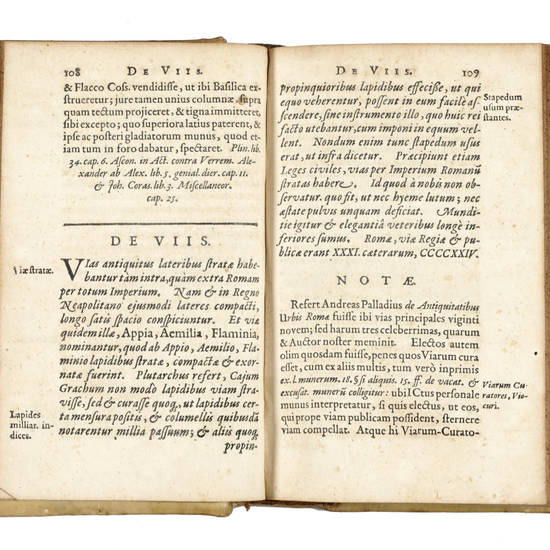 108 DE VIIS.
& Flacco Coss. vendidisse, ut ibi Basilica ex-
strueretur; jure tamen unius columnæ, supra
quam tectum projiceret, & tigna immitteret,
sibi excepto; quo superiora latius paterent, &
ipse ac posteri gladiatorum munus, quod et-
iam tum in foro dabatur, spectaret. Plin. lib.
34. cap. 6. Ascon. in Act. contra Verrem. Ale-
xander ab Alex. lib. 5. genial. dier. cap. 11.
& Joh. Coras. lib. 3. Miscellaneor.
cap. 25.
DE VIIS.
Viæ stratæ.
VIas antiquitus lateribus stratæ habe-
bantur tam intra, quam extra Romam
per totum Imperium. Nam & in Regno
Neapolitano ejusmodi lateres compacti,
longo satis spacio conspiciuntur. Et viæ
quidem illæ, Appia, Aemilia, Flaminia,
nominantur, quod ab Appio, Aemilio, Fla-
minio lapidibus stratæ, compactæ & exor-
natæ fuerint. Plutarchus refert, Cajum
Gracchum non modo lapidibus viam stra-
visse, sed & curasse quoq, ut lapidibus cer-
ta mensura positis, & columellis quibusdā
notarentur millia passuum; & aliis quoq,
Lapides
milliar. in-
dices.
propin-
DE VIIS. 109
propinquioribus lapidibus effecisse, ut qui
equo veherentur, possent in eum facilè as-
scendere, sine instrumento illo, quo huic rei
facto utebantur, cum imponi in equum vel-
lent. Nondum enim tunc stapedum usus
erat, ut infra dicetur. Præcipiunt etiam
Leges civiles, vias per Imperium Romanū
stratas habere. Id quod à nobis non ob-
servatur. quo fit, ut nec hyeme lutum; nec
æstate pulvis unquam deficiat. Mundi-
tie igitur & elegantiâ veteribus longè in-
feriores sumus. Romæ, viæ Regiæ & pu-
blicæ erant XXXI. cæterarum, CCCCXXIV.
Stapedum
usum præ-
stantes.
NOTÆ.
Refert Andreas Palladius de Antiquitatibus
Urbis Romæ fuisse ibi vias principales viginti
novem; sed harum tres celeberrimas, quarum
& Auctor noster meminit. Electos autem
olim quosdam fuisse, penes quos Viarum cura
esset, cum ex aliis multis, tum verò inprimis
ex l. munerum. 18. § si aliquis. 15. ff. de vacat. &
excusat. munerū colligitur: ubi I Ctus personale
munus interpretatur, si quis electus, ut eos,
qui prope viam publicam possident, sternere
viam compellat. Atque hi Viarum-Curato-
Viarum Cu-
ratores, Vio-
curi.